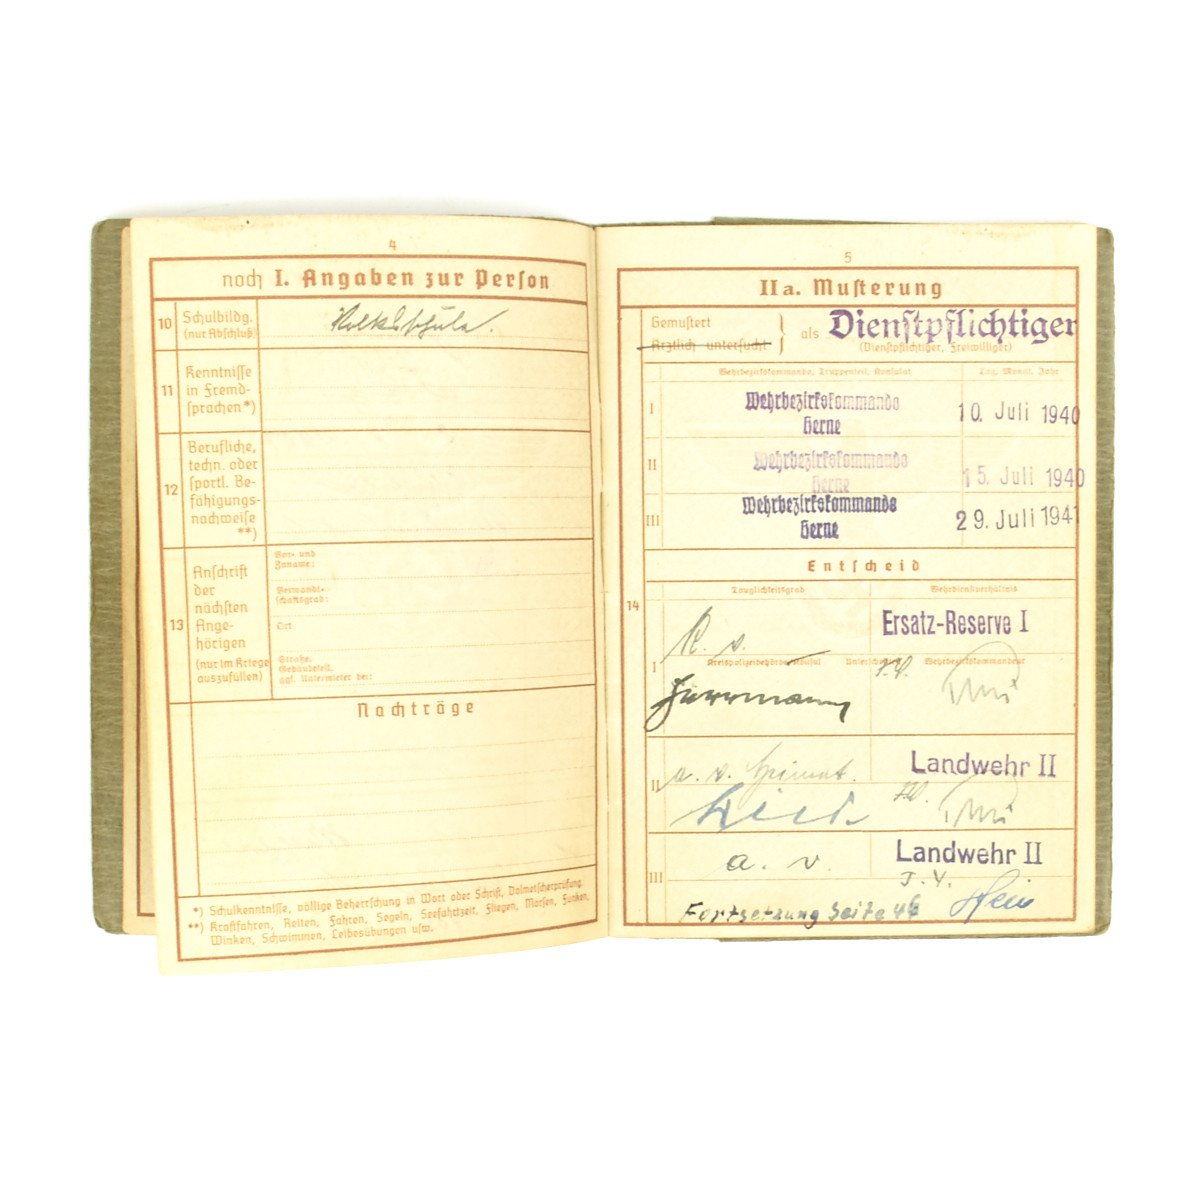 4
noch I. Angaben zur Person
10 Schulbildg.
(nur Abschluß)
Volksschule.
11 Kenntnisse
in Fremd-
sprachen*)
12 Berufliche,
techn. oder
sportl. Be-
fähigungs-
nachweise
**)
13 Anschrift
der
nächsten
Ange-
hörigen
(nur im Kriege
auszufüllen)
Vor- und
Zuname:
Verwandt-
schaftsgrad:
Ort
Straße,
Gebäudeteil,
ggf. Untermieter bei:
Nachträge
*) Schulkenntnisse, völlige Beherrschung in Wort oder Schrift, Dolmetscherprüfung.
**) Kraftfahren, Reiten, Fahren, Segeln, Seefahrtzeit, Fliegen, Morsen, Funken,
Winken, Schwimmen, Leibesübungen usw.
5
IIa. Musterung
Gemustert
Ärztlich untersucht
als Dienstpflichtiger
(Dienstpflichtiger, Freiwilliger)
Wehrbezirkskommando, Truppenteil, Konsulat
Tag, Monat, Jahr
I Wehrbezirkskommando
Herne
10. Juli 1940
II Wehrbezirkskommando
Herne
15. Juli 1940
III Wehrbezirkskommando
Herne
29. Juli 1941
Entscheid
14
Tauglichkeitsgrad
Wehrdienstverhältnis
I
K. v.
Ersatz-Reserve I
Kreispolizeibehörde/Konsul
Unterschriften
Wehrbezirkskommandeur
J.V.
II
a. v. Heimat.
Landwehr II
J.V.
III
a. v.
Landwehr II
J. V.
Fortsetzung Seite 46